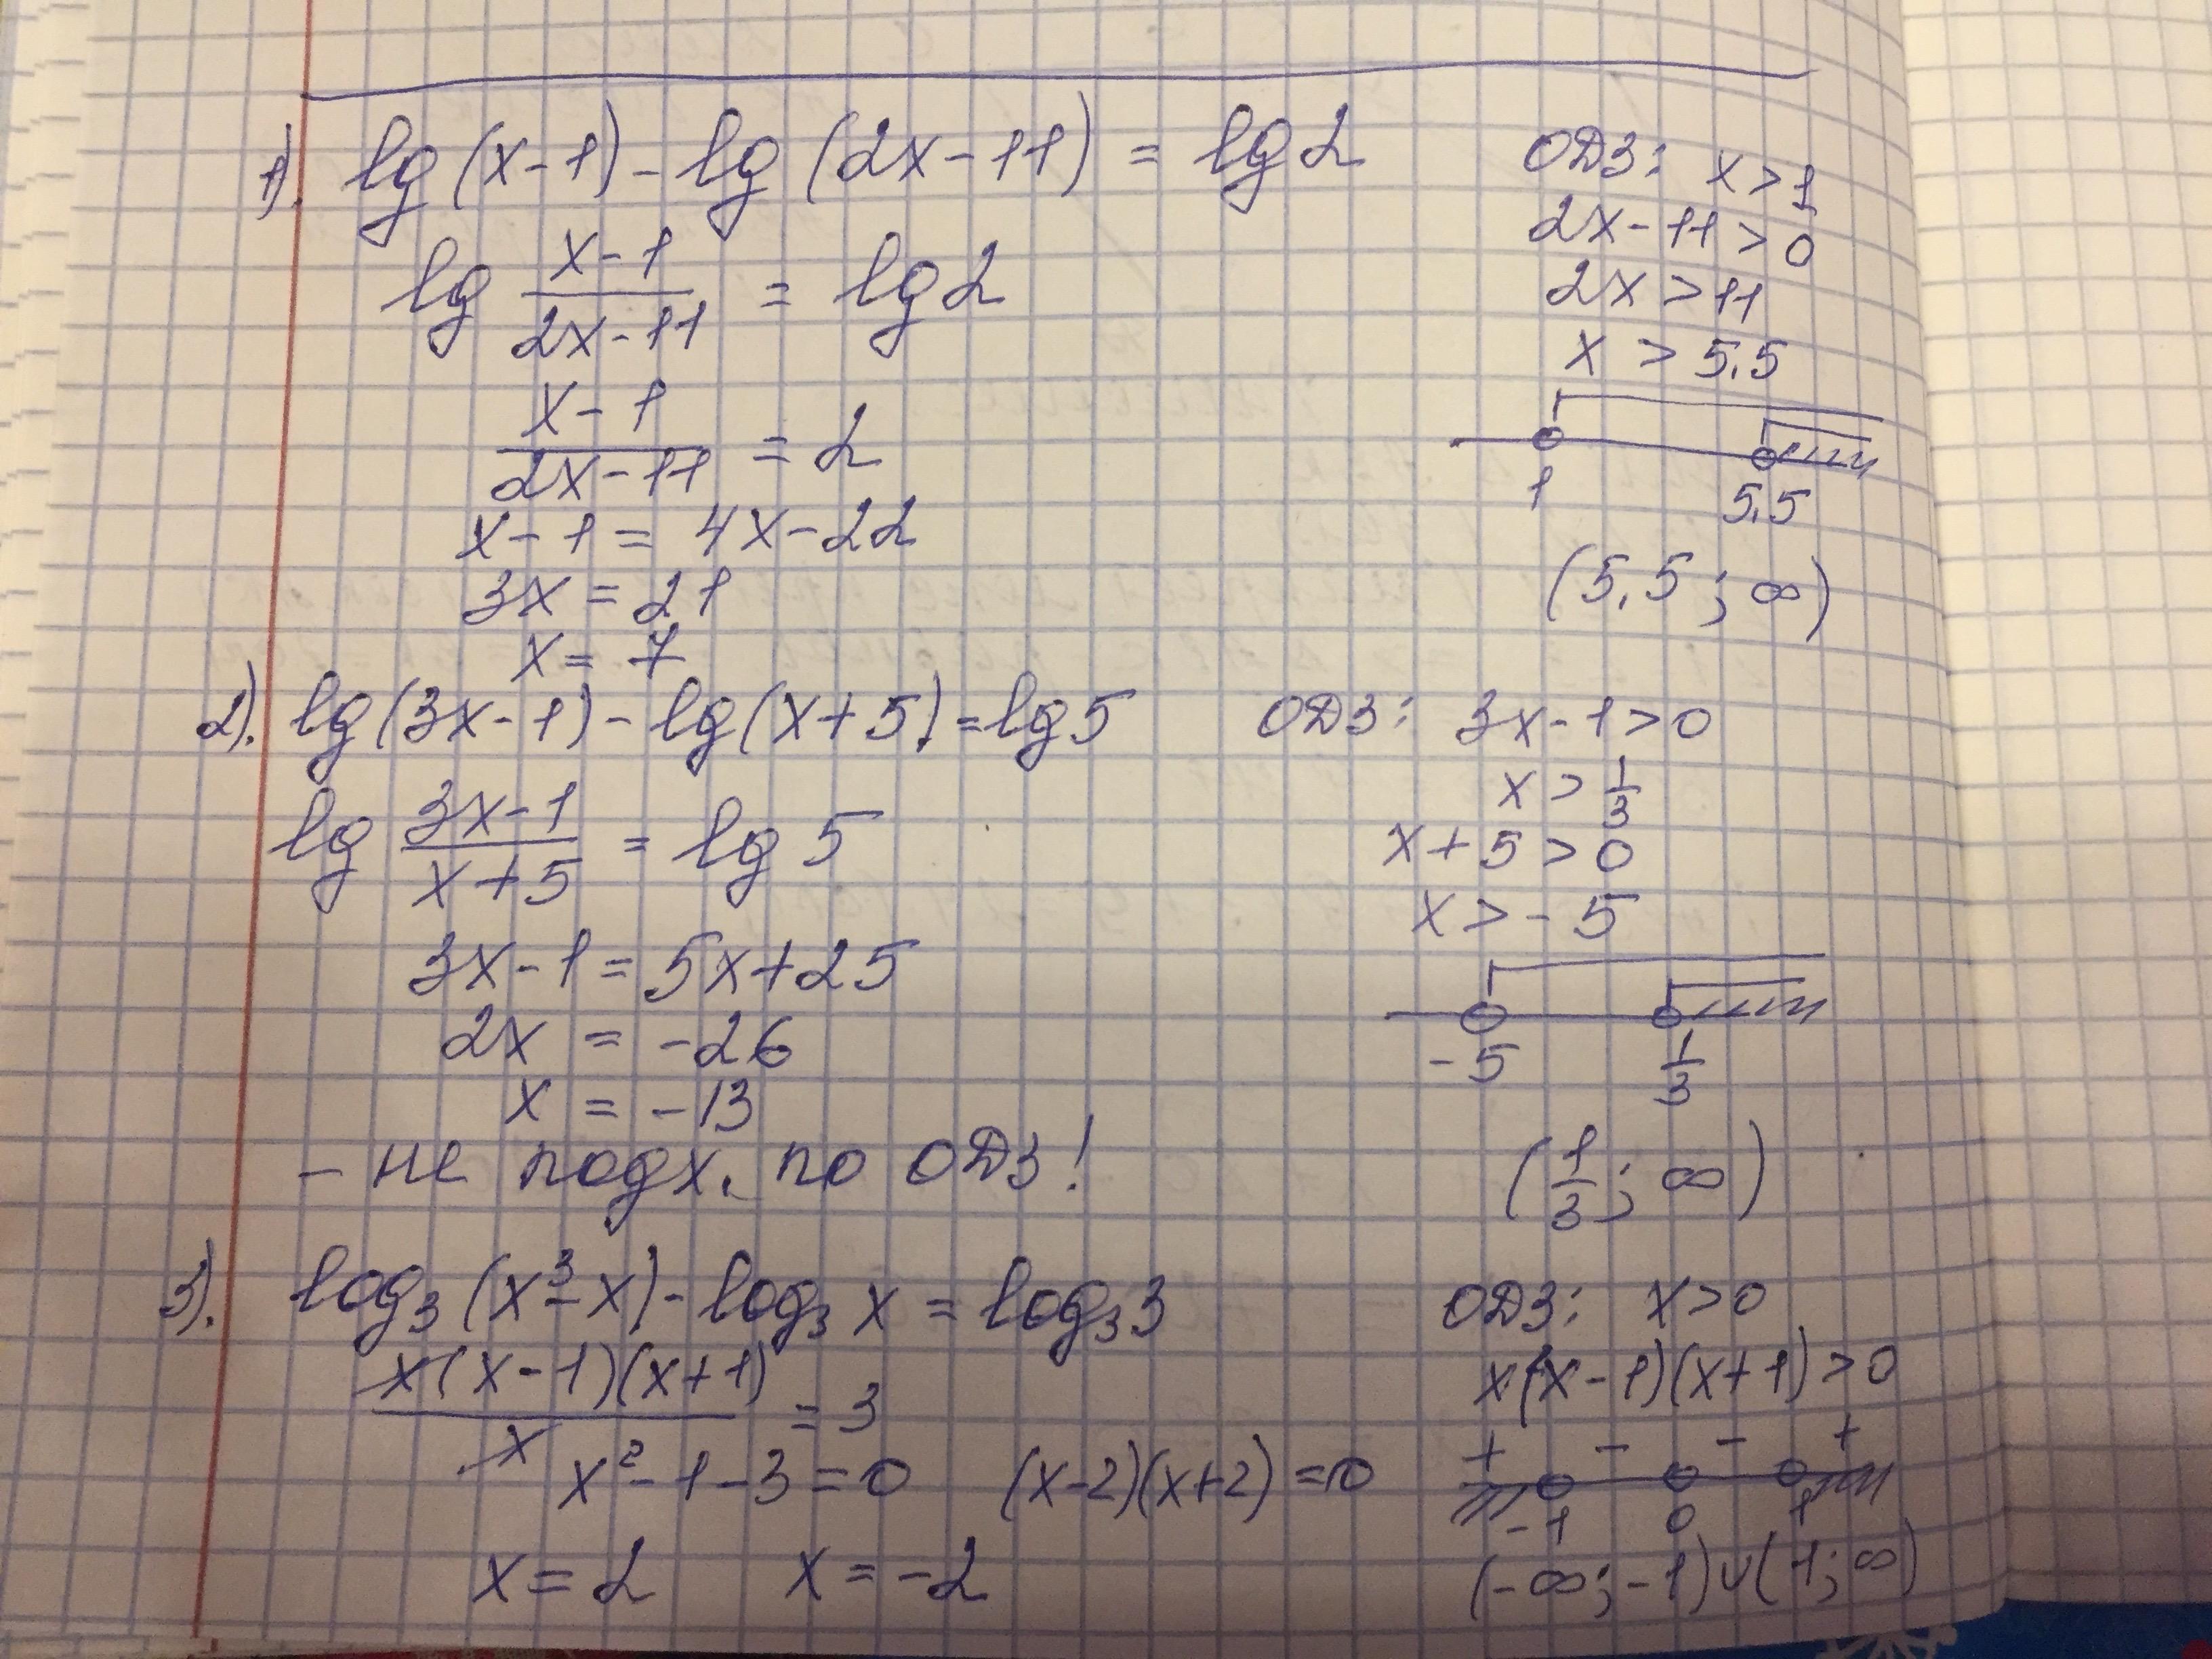 1). lg (x-1) - lg (2x-11) = lg 2
ОДЗ: x > 1
2x-11 > 0
lg (x-1)/(2x-11) = lg 2
2x > 11
x > 5,5
(x-1)/(2x-11) = 2
1 5,5
x-1 = 4x-22
3x = 21
(5,5; ∞)
x = 7
2). lg (3x-1) - lg (x+5) = lg 5
ОДЗ: 3x-1 > 0
x > 1/3
lg (3x-1)/(x+5) = lg 5
x+5 > 0
x > -5
3x-1 = 5x+25
2x = -26
-5 1/3
x = -13
- не подх. по ОДЗ!
(1/3; ∞)
3). log₃ (x³-x) - log₃ x = log₃ 3
ОДЗ: x > 0
x(x-1)(x+1)/x = 3
x(x-1)(x+1) > 0
+ - - +
x²-1-3 = 0 (x-2)(x+2) = 0
-1 0 1
x = 2 x = -2
(-∞; -1) ∪ (1; ∞)